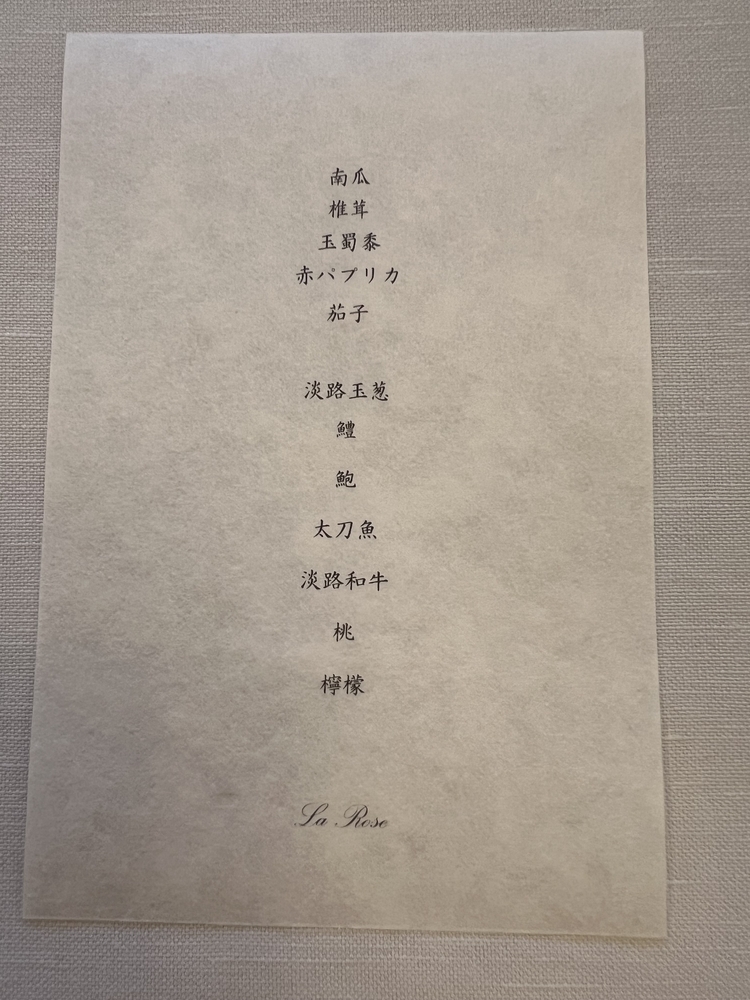 南瓜
椎茸
玉蜀黍
赤パプリカ
茄子
淡路玉葱
鱧
鮑
太刀魚
淡路和牛
桃
檸檬
La Rose